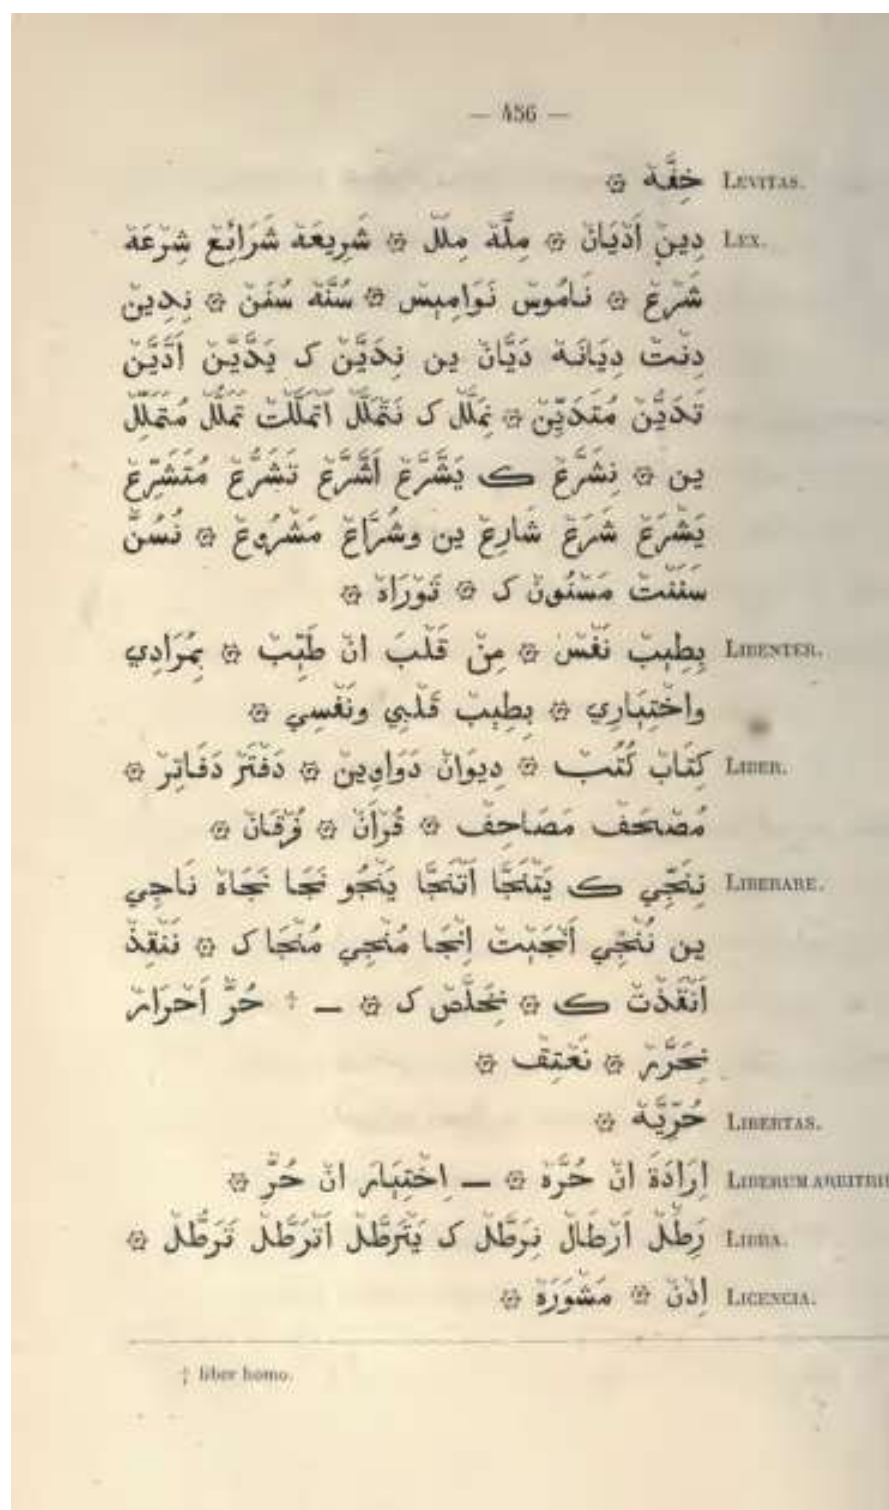 — 456 —
LEVITAS. خِفَّة ۞
LEX. دِين أَدْيَان ۞ مِلَّة مِلَل ۞ شَرِيعَة شَرَائِع شِرْعَة
شَرْع ۞ نَامُوس نَوَامِيس ۞ سُنَّة سُنَن ۞ نِدِين
دِنْت دِيَانَة دَيَّان ين نِدَيَّن ك يَدَّيَّن اَدَّيَّن
تَدَيُّن مُتَدَيِّن ۞ نِمَلَّل ك نَتْمَلَّل اَتْمَلَّلْت تَمَلُّل مُتَمَلِّل
ين ۞ نِشَرَّع ك يَشَّرَّع اَشَّرَّع تَشَرُّع مُتَشَرِّع
يَشْرَع شَرَع شَارِع ين وشُرَّاع مَشْرُوع ۞ نُسُنّ
سَنَنْت مَسْنُون ك ۞ تَوْرَاة ۞
LIBENTER. بِطِيب نَفْس ۞ مِنْ قَلْبَ انْ طَيِّب ۞ بِمُرَادِي
واخْتِيَارِي ۞ بِطِيب قَلْبِي ونَفْسِي ۞
LIBER. كِتَاب كُتُب ۞ دِيوَان دَوَاوِين ۞ دَفْتَر دَفَاتِر ۞
مُصْحَف مَصَاحِف ۞ قُرْأَن ۞ فُرْقَان ۞
LIBERARE. نِنَجِّي ك يَتْنَجَّا اَتْنَجَّا يَنْجُو نَجَا نَجَاة نَاجِي
ين نُنْجِي اَنْجَيْت اِنْجَا مُنْجِي مُنْجَا ك ۞ نَنْقِذ
اَنْقَذْت ك ۞ نِخَلَّص ك ۞ — † حُرّ اَحْرَار
نِحَرَّر ۞ نَعْتِق ۞
LIBERTAS. حُرِّيَّة ۞
LIBERUM ARBITRI اِرَادَةَ انْ حُرَّة ۞ — اِخْتِيَارَ انْ حُرّ ۞
LIBRA. رَطْل اَرْطَال نِرَطَّل ك يَتْرَطَّل اَتْرَطَّل تَرَطُّل ۞
LICENCIA. اِذْن ۞ مَشْوَرَة ۞
† liber homo.